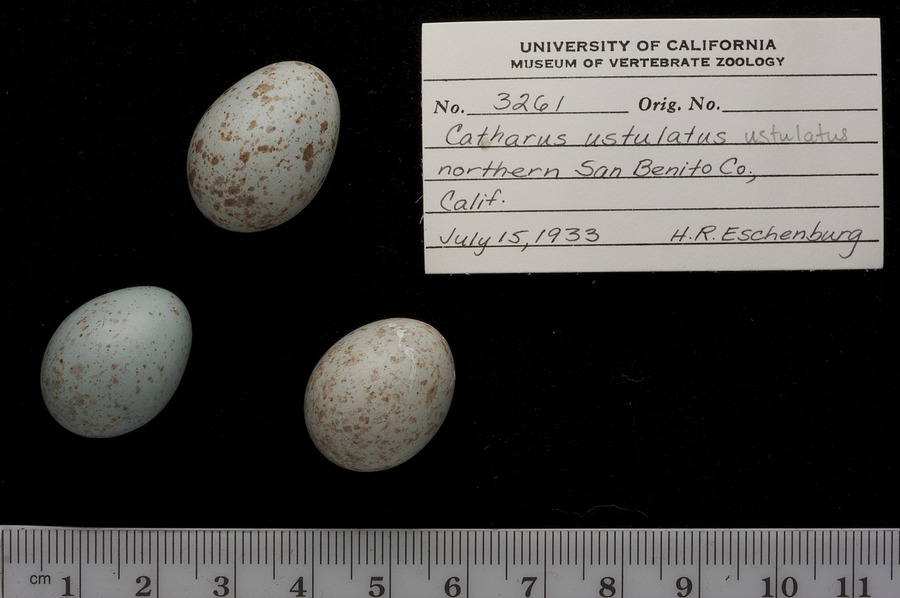 UNIVERSITY OF CALIFORNIA
MUSEUM OF VERTEBRATE ZOOLOGY
No. 3261 Orig. No.
Catharus ustulatus ustulatus
northern San Benito Co.,
Calif.
July 15, 1933 H.R. Eschenburg
cm 1 2 3 4 5 6 7 8 9 10 11